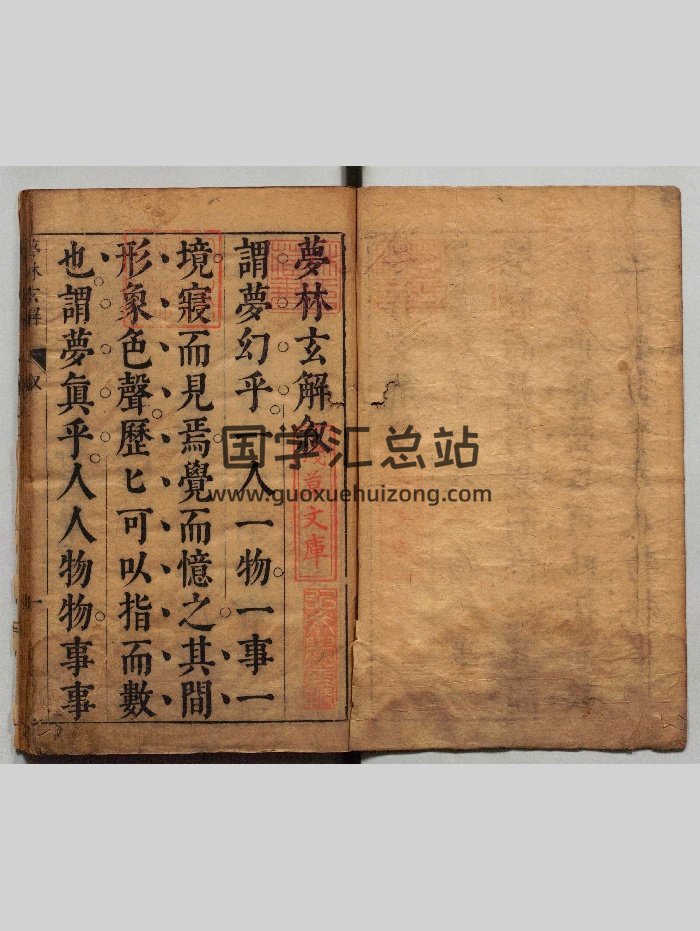 夢林玄解敘
謂夢幻乎一人一物一事一
境寢而見焉覺而憶之其間
形象色聲歷匕可以指而數
也謂夢眞乎人人物物事事
夢林玄解
叙
一
草文庫
国学汇总站
www.guoxuehuizong.com